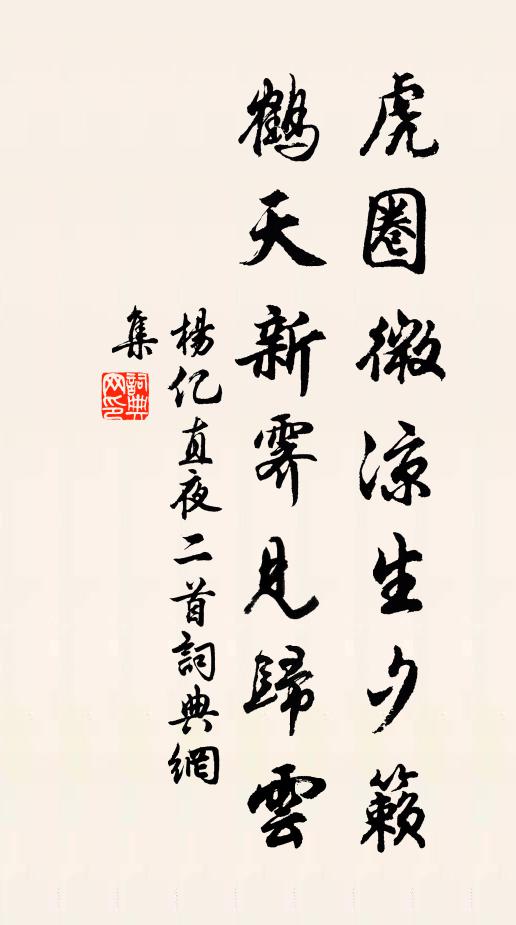 虎圈微涼生夕籟
鶴天新霽見歸雲
楊亿直夜二首詞典網
集
詞典
网印